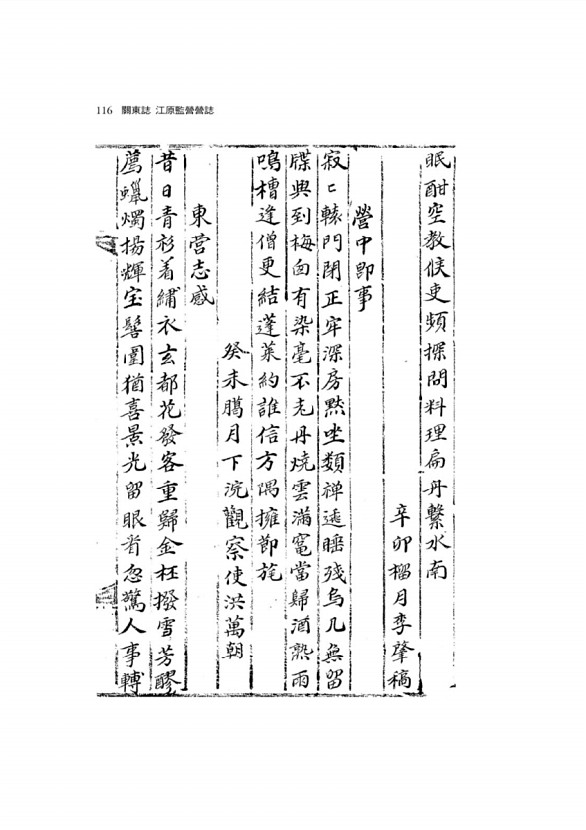 116 關東誌 江原監營營誌
眠酣空教候吏頻探問料理扁舟繫水南
辛卯榴月李肇稿
營中卽事
寂〻轅門閉正牢深房黙坐類禅逃睡殘烏几無留
牒興到梅囱有染毫不老丹燒雲滿竈當歸酒熟雨
鳴槽逢僧更結蓬萊約誰信方隅擁節旄
癸未臈月下浣觀察使洪萬朝
東营志感
昔日青衫着繡衣玄都花發客重歸金枉撥雪芳醪
薦蠟燭揚輝宝髻圍猶喜景光留眼看忽驚人事轉